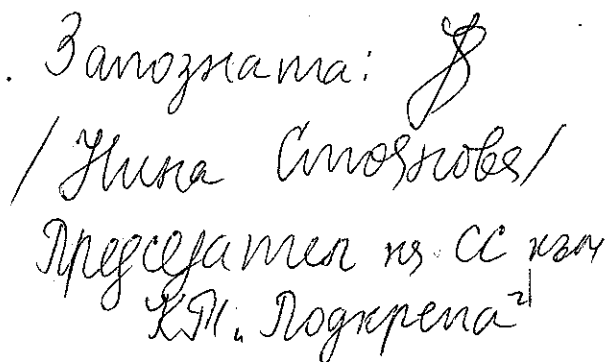 Запозната:
/Нина Стоянова/
Председател на СС към
КТ „Подкрепа“